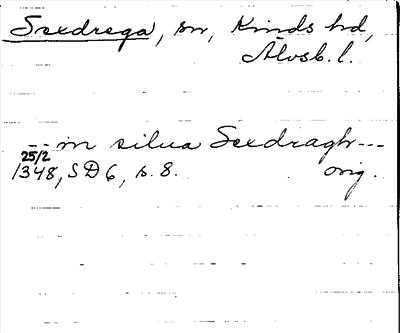 Sexdrega, sn, Kinds hd,
Älvsb. l.
-- in silua Sexdragh ---
25/2
1348, SD 6, s. 8. orig.